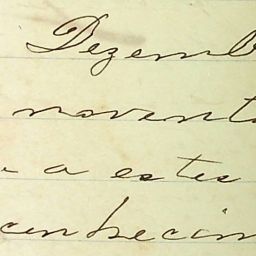 Dezemb
novent
a estes
conhecim